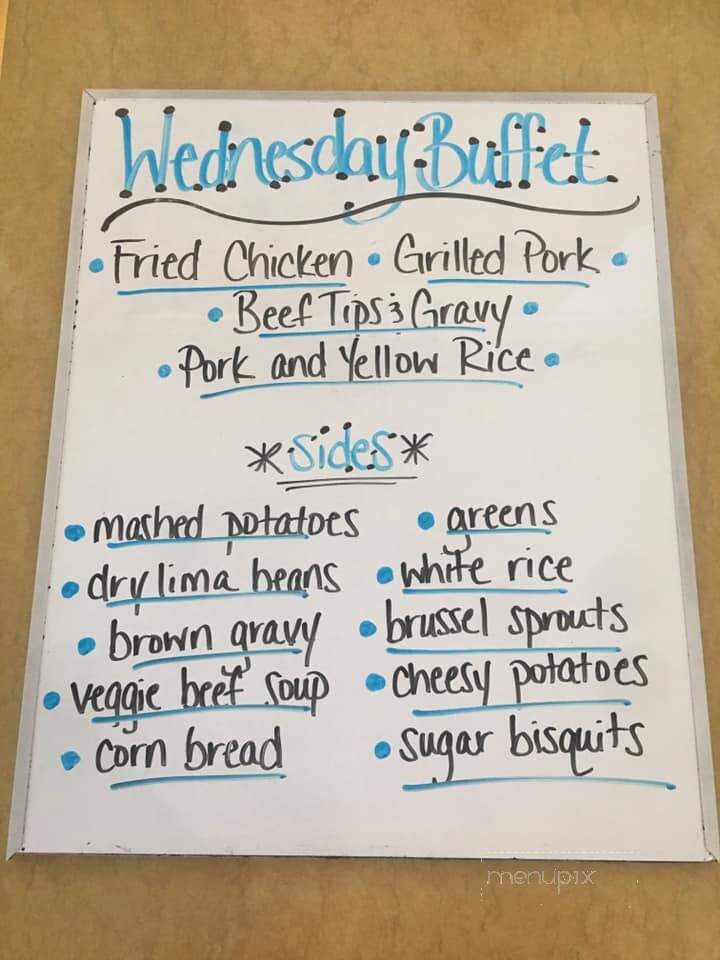 Wednesday Buffet
• Fried Chicken • Grilled Pork •
• Beef Tips & Gravy •
• Pork and Yellow Rice •
* Sides *
• mashed potatoes
• dry lima beans
• brown gravy
• veggie beef soup
• corn bread
• greens
• white rice
• brussel sprouts
• cheesy potatoes
• sugar bisquits
menupix